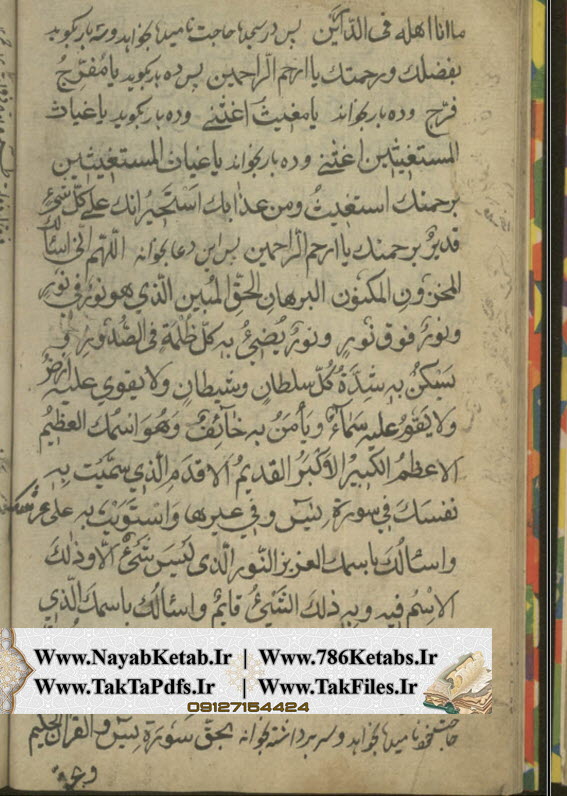 ما انا اهله فی الدارین پس در سجدها حاجت نامیدها بخواهد و سه بار بکوید
بفضلك ورحمتك یا ارحم الراحمین پس ده بار بکوید یا مفرّج
فرّج وده بار بخواند یا مغیث اغثنی وده بار بکوید یا غیاث
المستغیثین اغثنی وده بار بخواند یا غیاث المستغیثین
برحمتك استغیث ومن عذابك استجیر انك علی کلّ شیء
قدیر برحمتك یا ارحم الراحمین پس این دعا بخواند اللّهم انّی اسألك
المخزون المکنون البرهان الحقّ المبین الّذی هو نور فی نور
ونور فوق نور ونور یُضیء به کلّ ظلمة فی الصّدور و
یسکن به شدّة کلّ سلطان وشیطان ولا یقوی علیه ارض
ولا یقوم علیه سماء ویأمن به خائف وهو اسمك العظیم
الاعظم الکبیر الاکبر القدیم الاقدم الّذی سمّیت به
نفسك فی سورة یس وفی غیرها واستویت به علی عرشك
واسئالك باسمك العزیز النّور الّذی لیس شیء الّا وذلك
الاسم فیه وبه ذلك الشّیء قایم واسئالك باسمك الّذی
www.NayabKetab.Ir | Www.786Ketabs.Ir
Www.TakTaPdfs.Ir | Www.TakFiles.Ir
09127154424
نامیدها بخواهد وسر برداشته بخواند بحقّ سورة یس والقرآن الحکیم